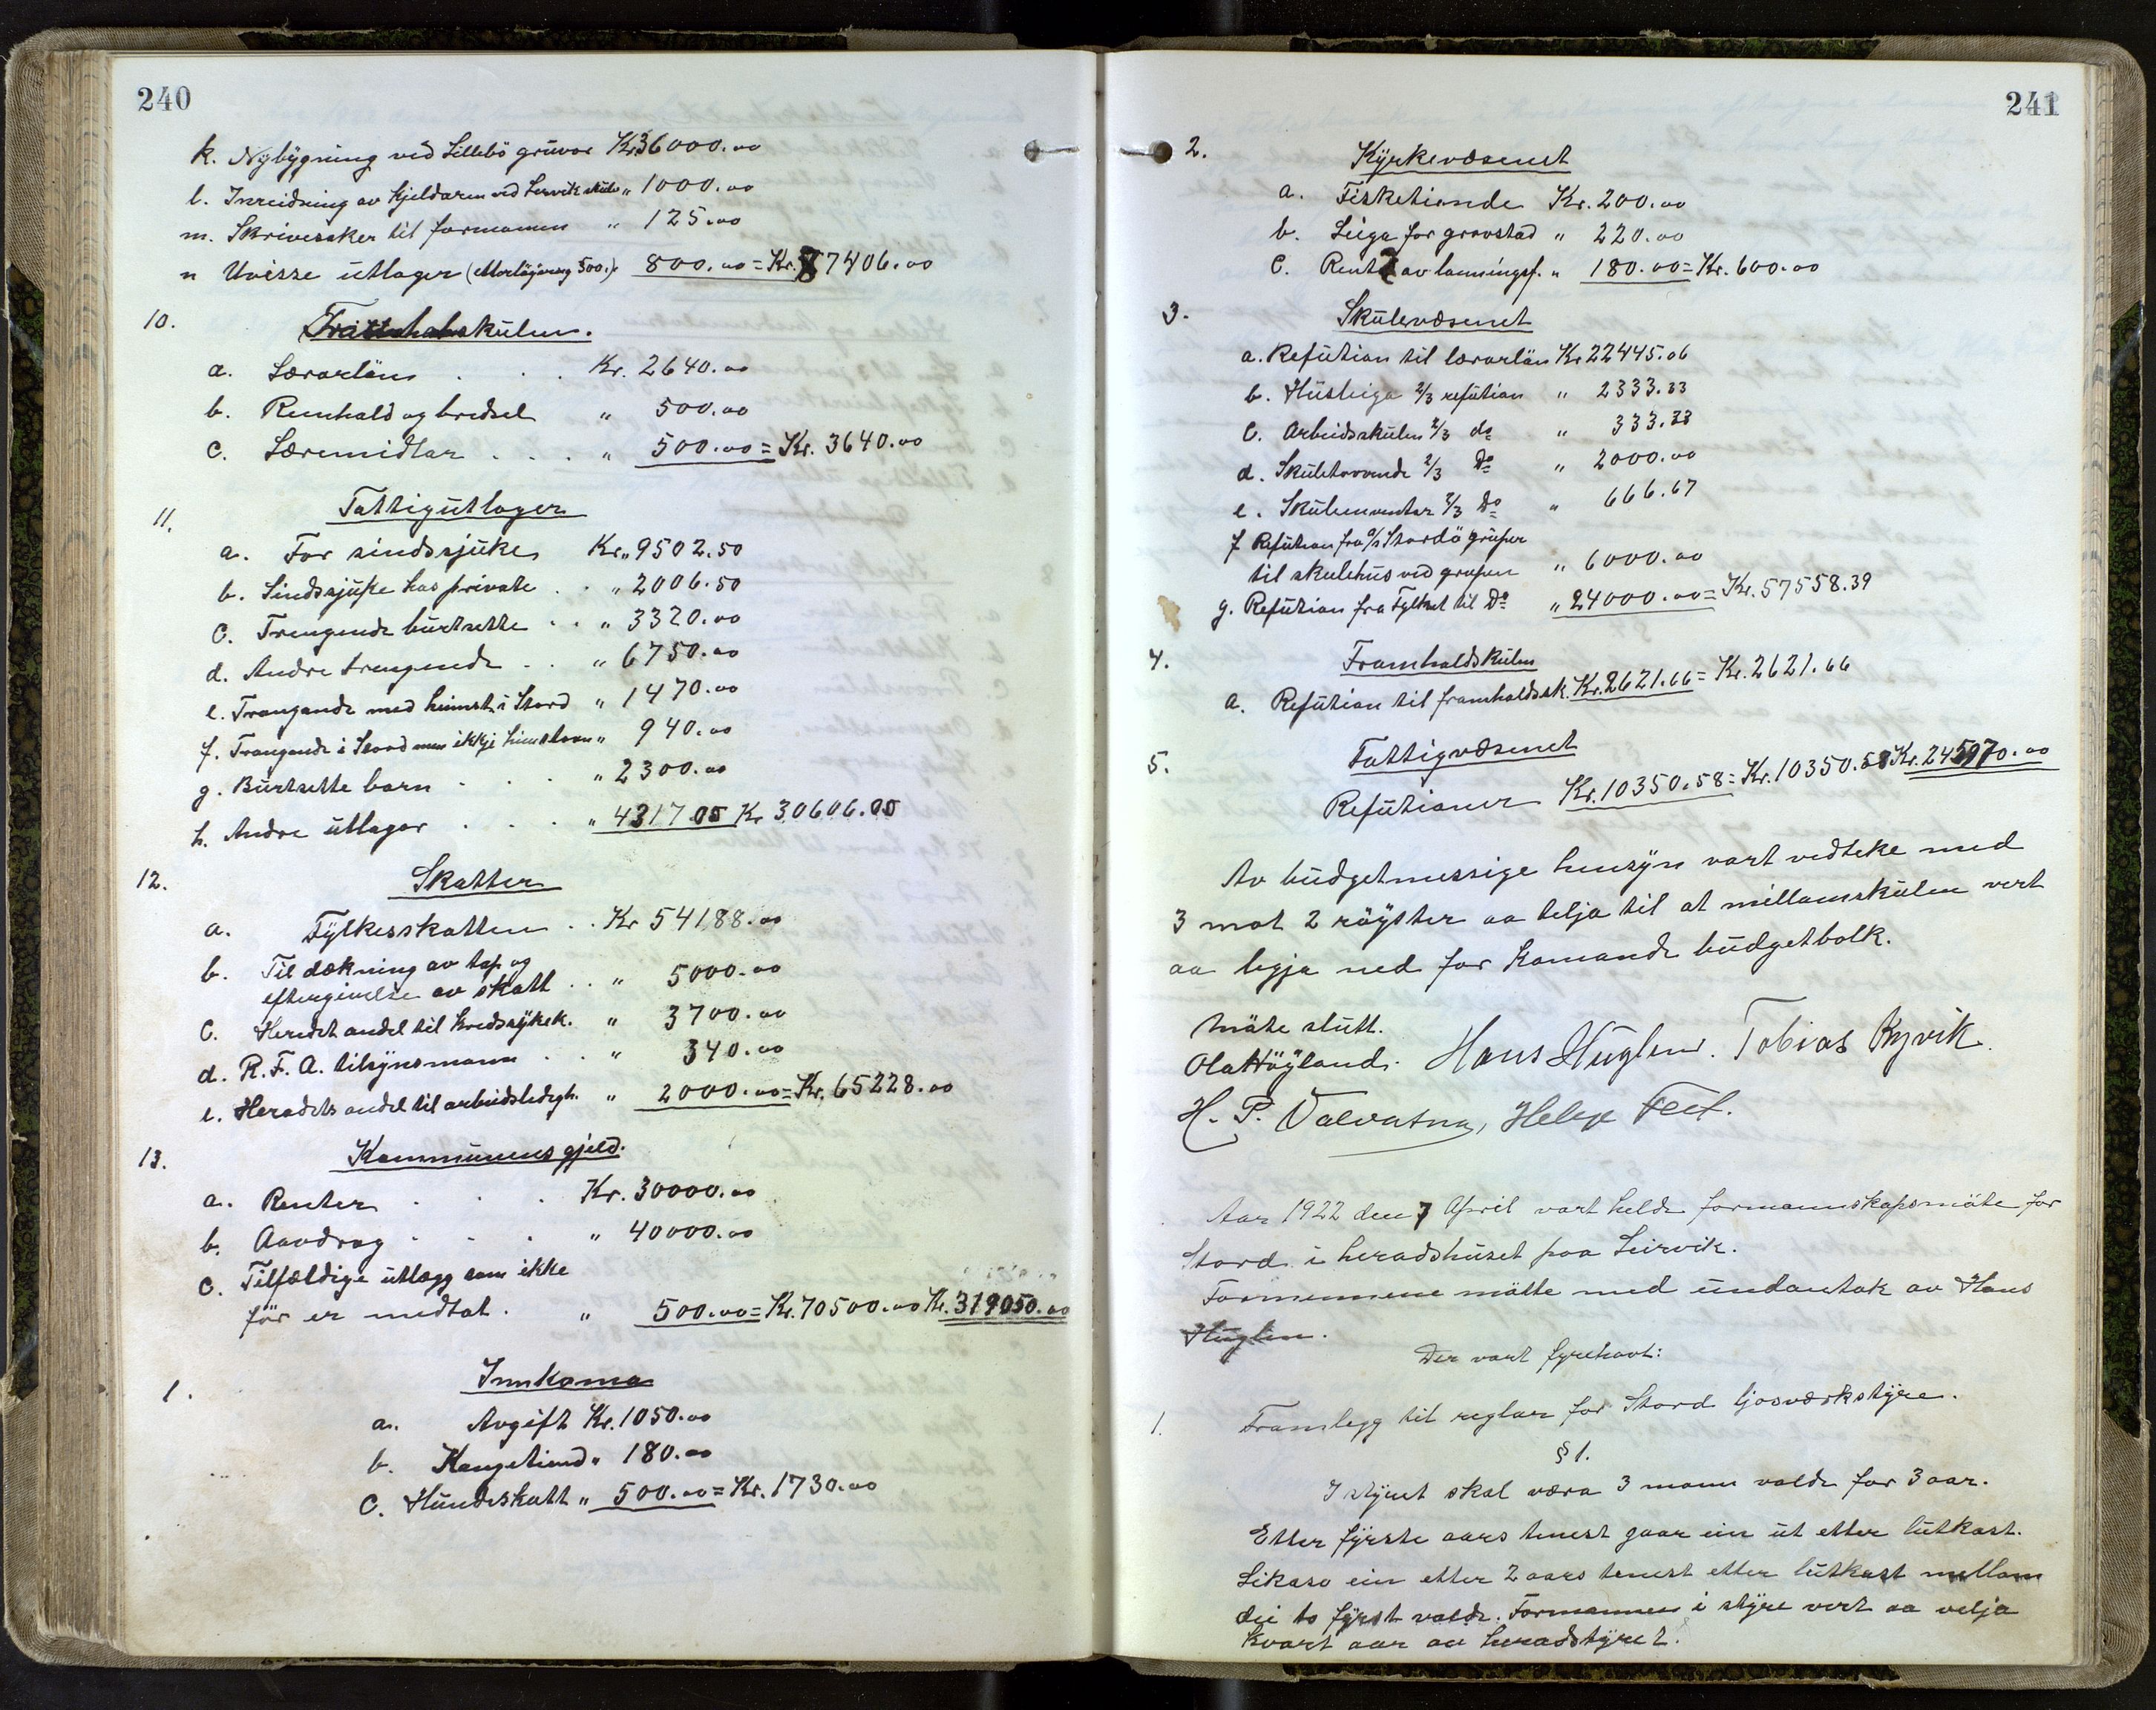 240
k. Nybygning ved Lillebö gruvor Kr. 36000.00
l. Inreidning av kjeldaren ved Lervik skule " 1000.00
m. Skrivesaker til formannen " 125.00
n Uvisse utlagor (etterlöjvning 500.) 800.00 = Kr. 87406.00
10. Framhaldskulen.
a. Lærarlön . . . Kr. 2640.00
b. Reinhald og bredsel " 500.00
c. Læremidlar . . . " 500.00 = Kr. 3640.00
11. Fattigutlagor
a. For sindssjuke Kr. " 9502.50
b. Sindssjuke hos private . . " 2006.50
c. Trengende burtsette . . " 3320.00
d. Andre trengende . . " 6750.00
e. Trengande med heimst. i Stord " 1470.00
f. Trengande i Stord men ikkji heimstavn " 940.00
g. Burtsette born . . . " 2300.00
h. Andre utlagor . . . " 4317.05 Kr 30606.05
12. Skatter
a. Fylkesskatten . . Kr 54188.00
b. Til dækning av tap og
eftergivelse av skatt . . " 5000.00
c. Heradet andel til kredssykek. " 3700.00
d. R.F.A. tilsynsmann . . " 340.00
e. Heradets andel til arbeidsledigh. " 2000.00 = Kr. 65228.00
13. Kommunens gjeld.
a. Renter . . . Kr. 30000.00
b. Aavdrag . . . " 40000.00
c. Tilfældige utlægg som ikke
för er medtat . " 500.00 = Kr. 70500.00 Kr. 319050.00
1. Innkoma
a. Avgift Kr. 1050.00
b. Kongetiend " 180.00
c. Hundeskatt " 500.00 = Kr. 1730.00
241
2. Kyrkevæsenet
a. Fisketiende Kr. 200.00
b. Leiga for gravstad " 220.00
c. Rente av lønningsf. " 180.00 = Kr. 600.00
3. Skulevæsenet
a. Refution til lærarlön Kr 22445.06
b. Husleiga 2/3 refution " 2333.33
c. Arbeidsskulen 2/3 do " 333.33
d. 2/3 Do " 2000.00
e. Skuleinventar 2/3 Do " 666.67
f Refution fra A/S Stordö gruber
til skulehus ved gruben " 6000.00
g. Refution fra Fylket til Do " 24000.00 = Kr. 57558.39
4. Framhaldskulen
a. Refution til framhaldssk. Kr. 2621.66 = Kr. 2621.66
5. Fattigvæsenet
Refutioner Kr. 10350.58 = Kr. 10350.58 Kr. 245970.00
Av budgetmessige hensyn vart vedteke med
3 mot 2 röyster aa telja til at millomskulen vert
aa legja ned for komande budgetbolk.
Möte slutt.
Ola Höyland. Hans Huglen. Tobias Rysvik.
H. P. Valvatna, Helge Teet.
Aar 1922 den 7 April vart helde formannskapsmöte for
Stord i heradshuset paa Leirvik.
Formennene mötte med undantak av Hans
Huglen.
Der vart fyrehavt:
1. Framlegg til reglar for Stord ljosværkstyre.
§ 1.
I styret skal væra 3 mann valde for 3 aar.
Etter fyrste aars tenest gaar ein ut etter lutkast.
Likaso ein etter 2 aars tenest etter lutkast mellom
dei to fyrst valde. Formannen i styre vert aa velja
kvart aar av heradstyret.